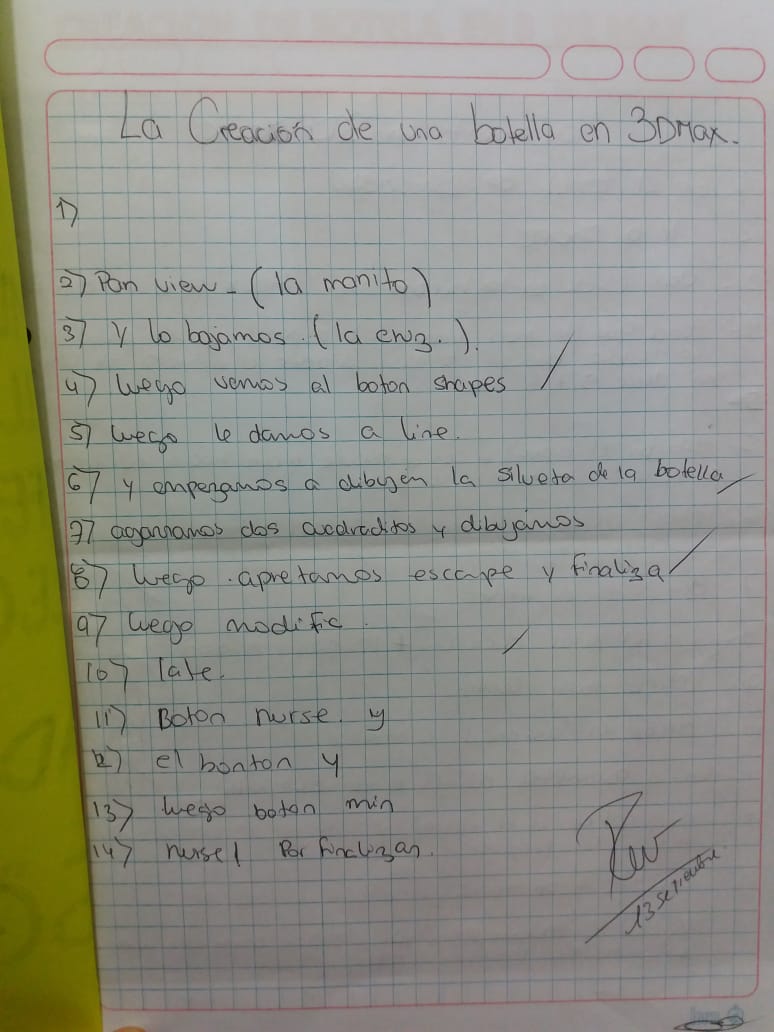 La Creación de una botella en 3DMax.
1)
2) Pan view - (la manito)
3) Y lo bajamos. (la cruz.).
4) luego vemos al boton shapes
5) luego le damos a line.
6) y empezamos a dibujar la silueta de la botella
7) agarramos dos cuadraditos y dibujamos
8) luego apretamos escape y finaliza
9) luego modific
10) late.
11) Boton nurse y
12) el bonton y
13) luego boton min
14) nurse Por finalizar.
13 setiembre